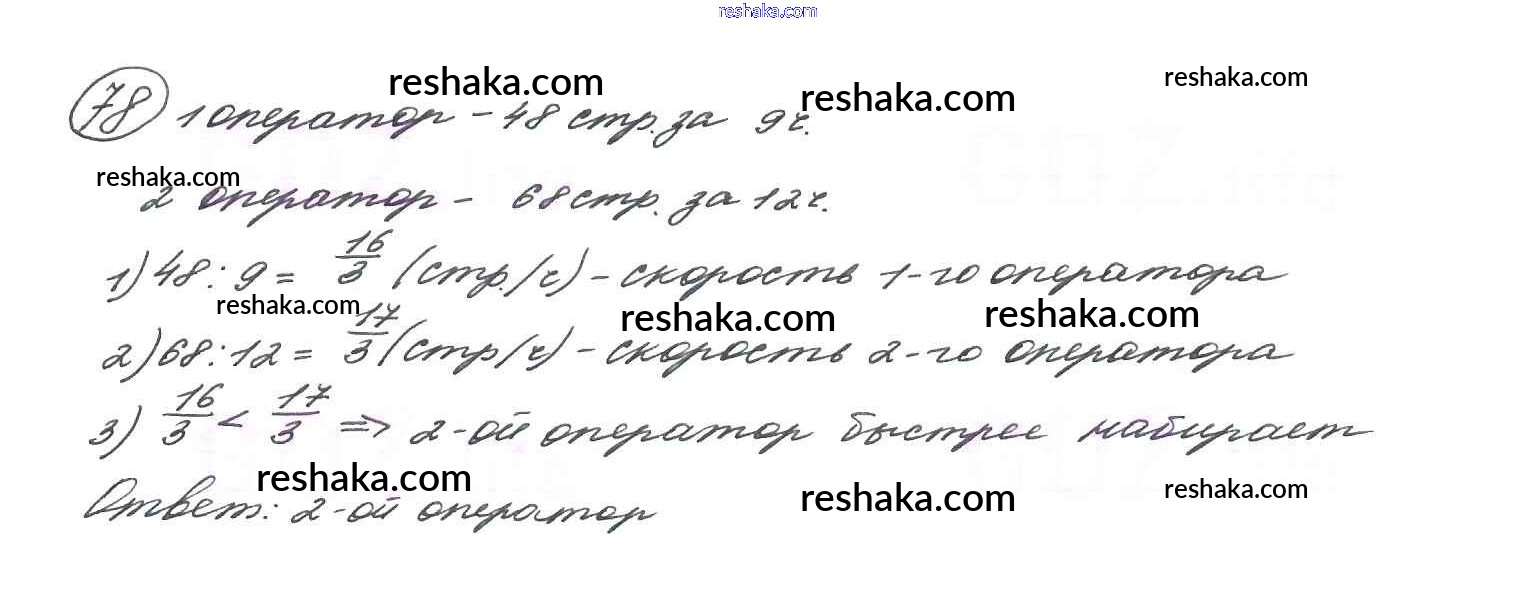 reshaka.com
reshaka.com reshaka.com reshaka.com
78 1 оператор - 48 стр. за 9 ч.
reshaka.com
2 оператор - 68 стр. за 12 ч.
1) 48 : 9 = 16/3 (стр./ч) - скорость 1-го оператора
reshaka.com reshaka.com reshaka.com
2) 68 : 12 = 17/3 (стр/ч) - скорость 2-го оператора
3) 16/3 < 17/3 => 2-ой оператор быстрее набирает
reshaka.com reshaka.com reshaka.com
Ответ: 2-ой оператор